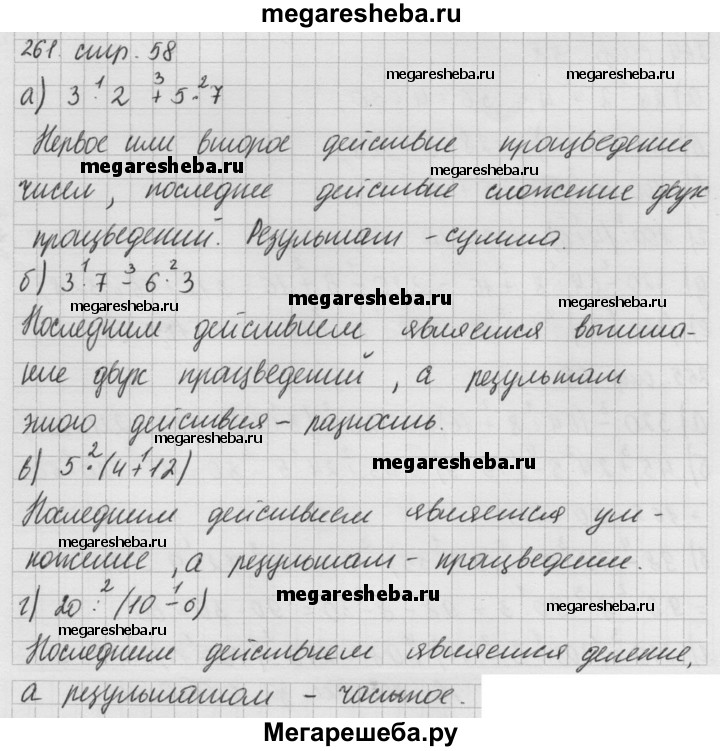 megaresheba.ru
261. стр. 58
megaresheba.ru
а) 3 · 2 + 5 · 7
1 3 2
Первое или второе действие произведение
megaresheba.ru megaresheba.ru
чисел, последнее действие сложение двух
произведений. Результат - сумма.
б) 3 · 7 - 6 · 3
1 3 2
megaresheba.ru
megaresheba.ru megaresheba.ru
Последним действием является вычита-
ние двух произведений, а результат
этого действия - разность.
megaresheba.ru
в) 5 · (4 + 12)
2 1
megaresheba.ru
Последним действием является ум-
ножение, а результат - произведение.
г) 20 : (10 - 6)
2 1
megaresheba.ru
megaresheba.ru
megaresheba.ru megaresheba.ru
Последним действием является деление,
а результатом - частное.
Мегарешеба.ру